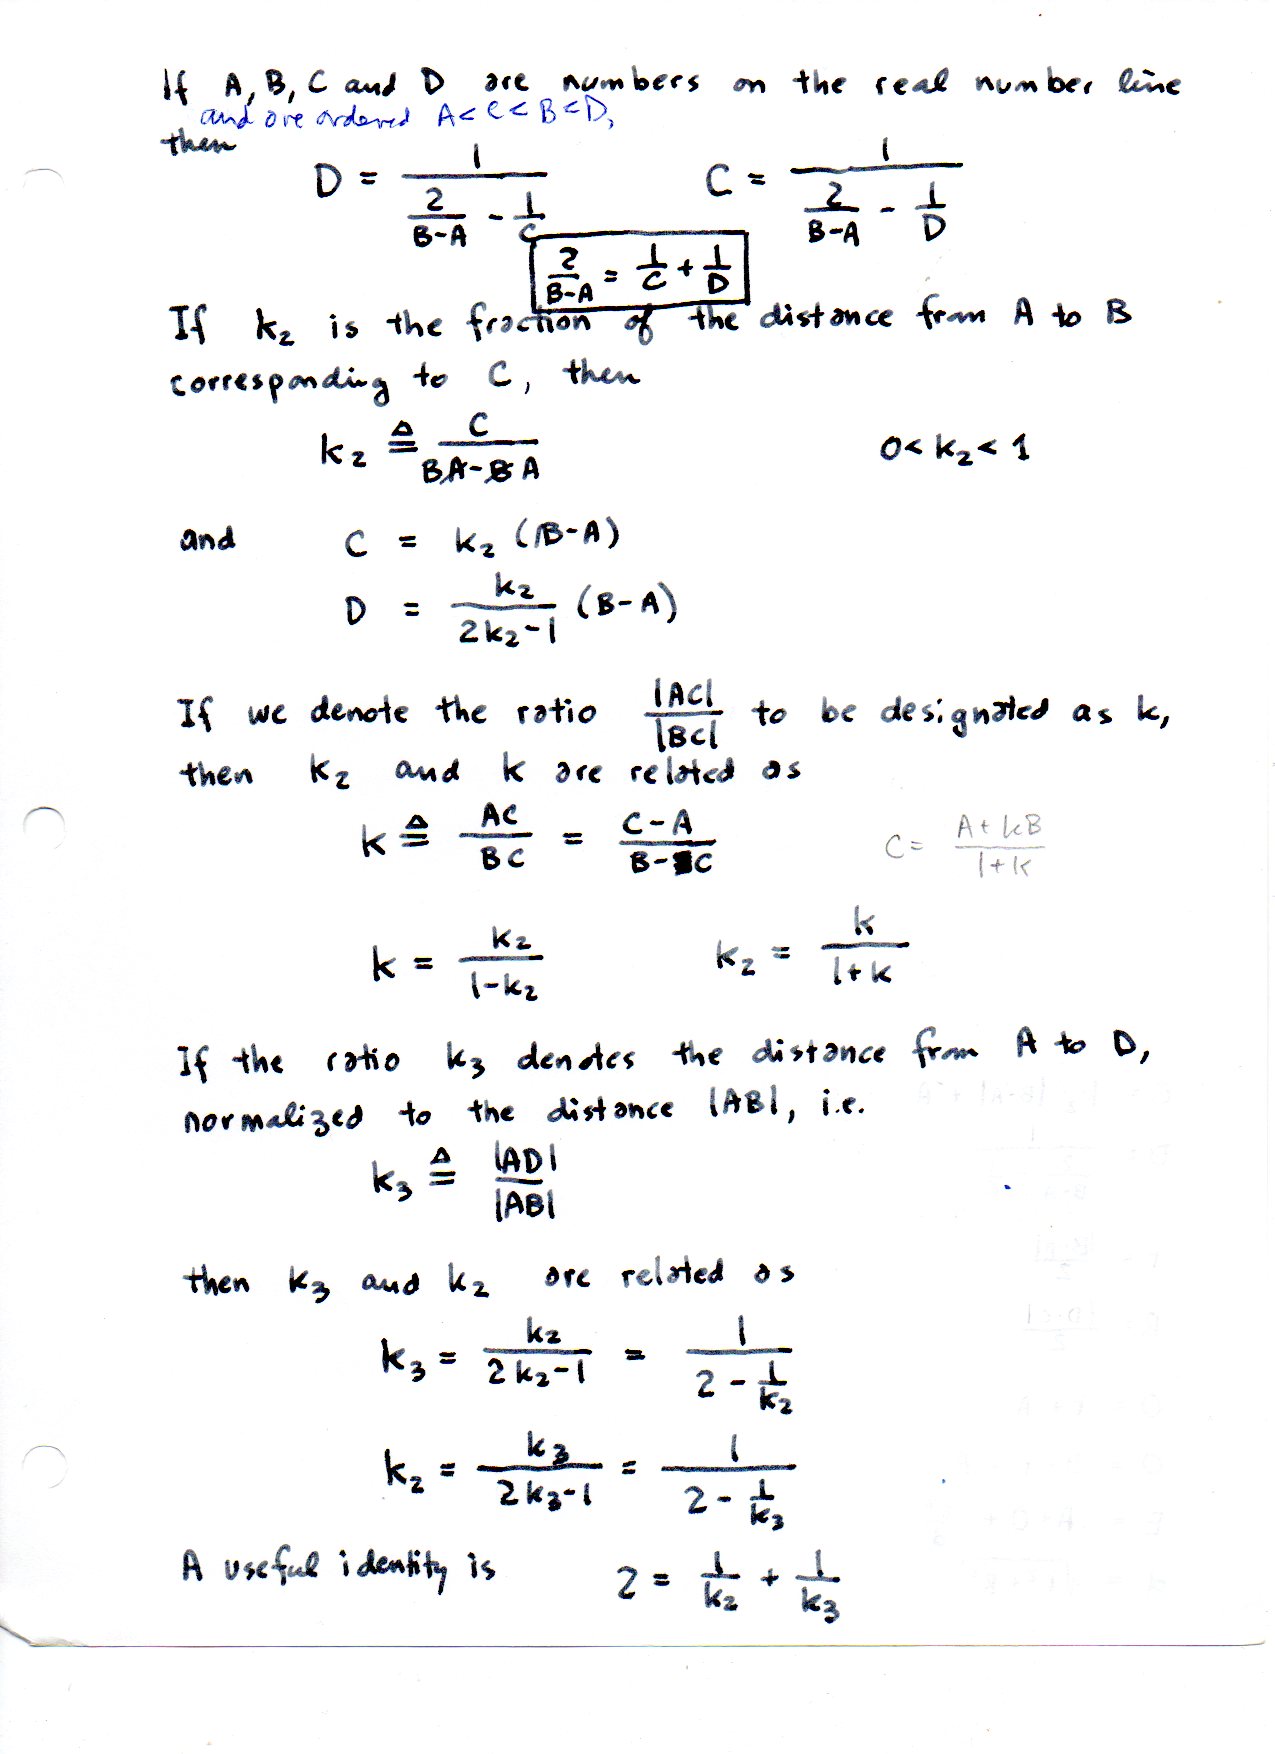 If A, B, C and D are numbers on the real number line
and are ordered A < C < B < D,
then
D = 1 / (2/(B-A) - 1/C)    C = 1 / (2/(B-A) - 1/D)
2/(B-A) = 1/C + 1/D
If k₂ is the fraction of the distance from A to B
corresponding to C, then
k₂ ≜ C / (B-A)    0 < k₂ < 1
and C = k₂ (B-A)
D = k₂/(2k₂-1) (B-A)
If we denote the ratio |AC|/|BC| to be designated as k,
then k₂ and k are related as
k ≜ AC/BC = (C-A)/(B-C)    C = (A+kB)/(1+k)
k = k₂/(1-k₂)    k₂ = k/(1+k)
If the ratio k₃ denotes the distance from A to D,
normalized to the distance |AB|, i.e.
k₃ ≜ |AD|/|AB|
then k₃ and k₂ are related as
k₃ = k₂/(2k₂-1) = 1/(2 - 1/k₂)
k₂ = k₃/(2k₃-1) = 1/(2 - 1/k₃)
A useful identity is 2 = 1/k₂ + 1/k₃